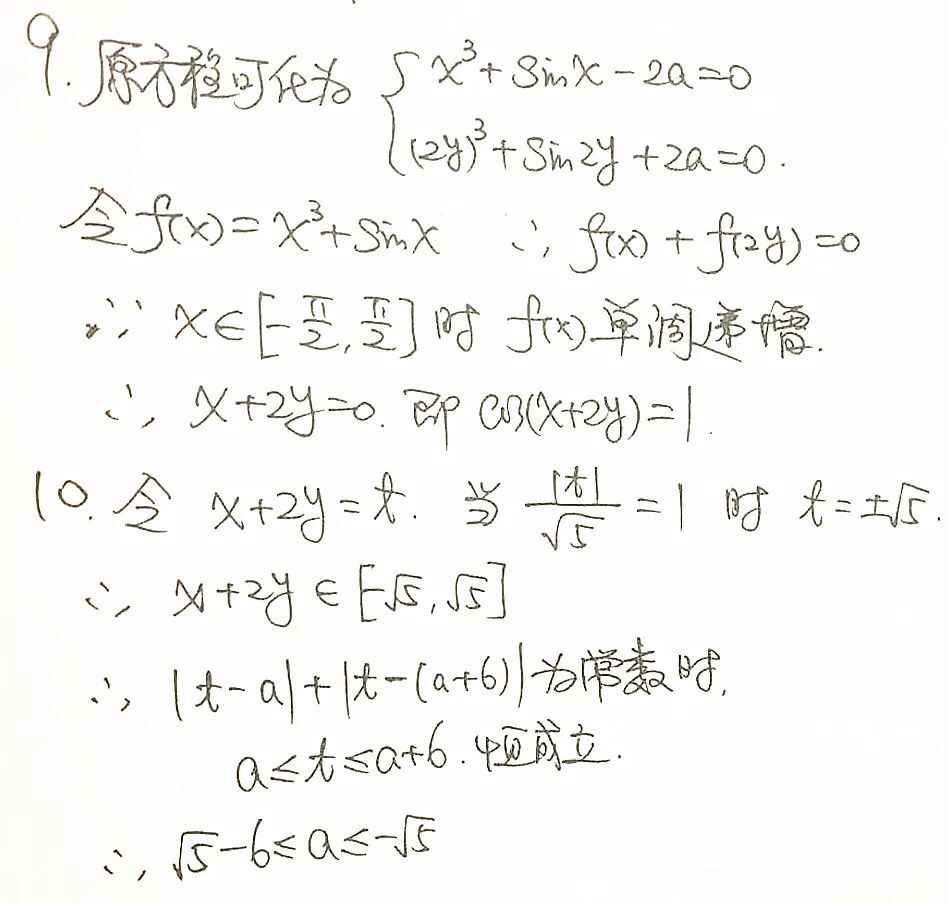 9. 原方程可化为 { x³+sinx-2a=0
(2y)³+sin2y+2a=0.
令f(x)=x³+sinx ∴ f(x)+f(2y)=0
∵ x∈[-π/2, π/2] 时 f(x)单调递增.
∴ x+2y=0. 即 cos(x+2y)=1.
10. 令 x+2y=t. 当 |t|/√5=1 时 t=±√5.
∴ x+2y∈[-√5,√5]
∴ |t-a|+|t-(a+6)|为常数时,
a≤t≤a+6.恒成立.
∴ √5-6≤a≤-√5